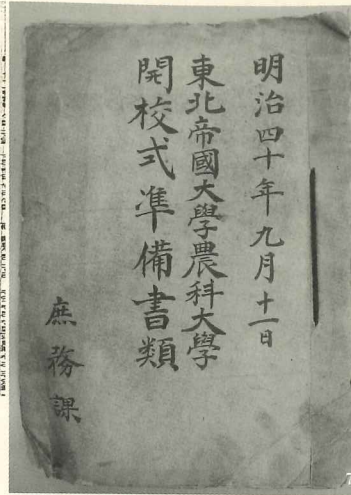 明治四十年九月十一日
東北帝國大學農科大學
開校式準備書類
庶務課
7